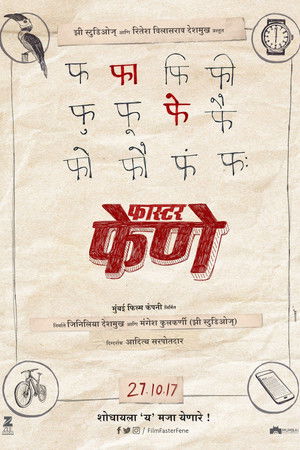 झी स्टुडिओज् आणि रितेश विलासराव देशमुख प्रस्तुत
फ फा फि फी
फु फू फे फै
फो फौ फं फः
फास्टर
फेणे
मुंबई फिल्म कंपनी निर्मित
निर्माते जिनिलिया देशमुख आणि मंगेश कुलकर्णी (झी स्टुडिओज्)
दिग्दर्शक आदित्य सरपोतदार
27.10.17
शोधायला 'य' मजा येणारे !
/FilmFasterFene